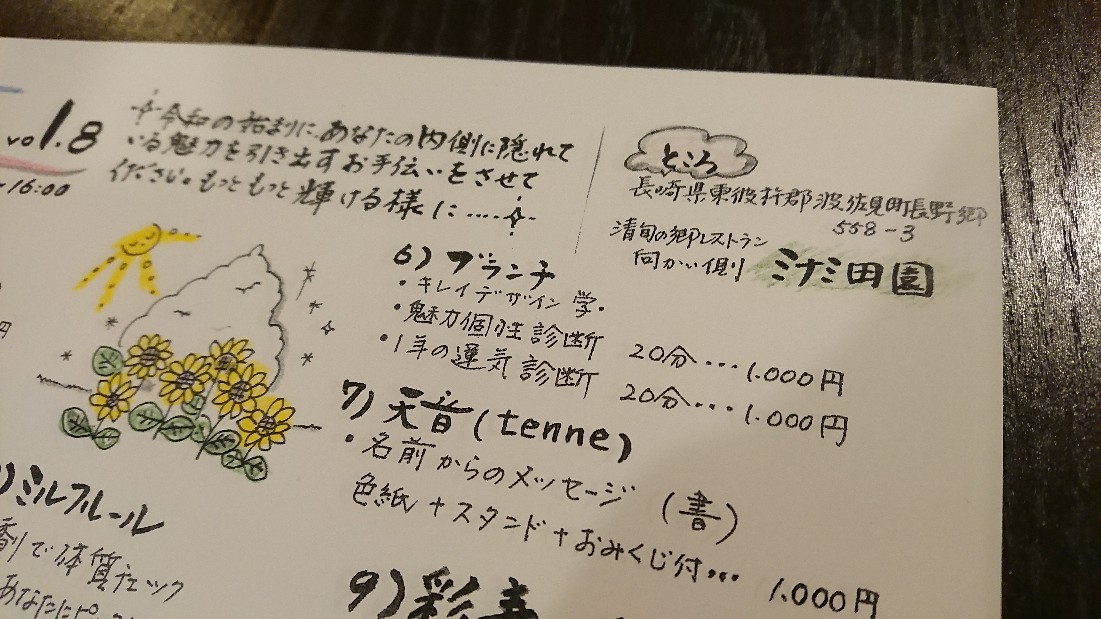 vol.8
16:00
令和の始まりに、あなたの内側に隠れて
いる魅力を引き出すお手伝いをさせて
ください。もっともっと輝ける様に……
ところ
長崎県東彼杵郡波佐見町長野郷
558-3
清旬の郷レストラン
向かい側
ミナミ田園
円
6)ブランチ
・キレイデザイン学・
・魅力個性診断 20分…1.000円
・1年の運気診断 20分…1.000円
7)天音(tenne)
・名前からのメッセージ(書)
色紙+スタンド+おみくじ付… 1.000円
)ミルフルール
で体質チェック
あなたに
9)彩